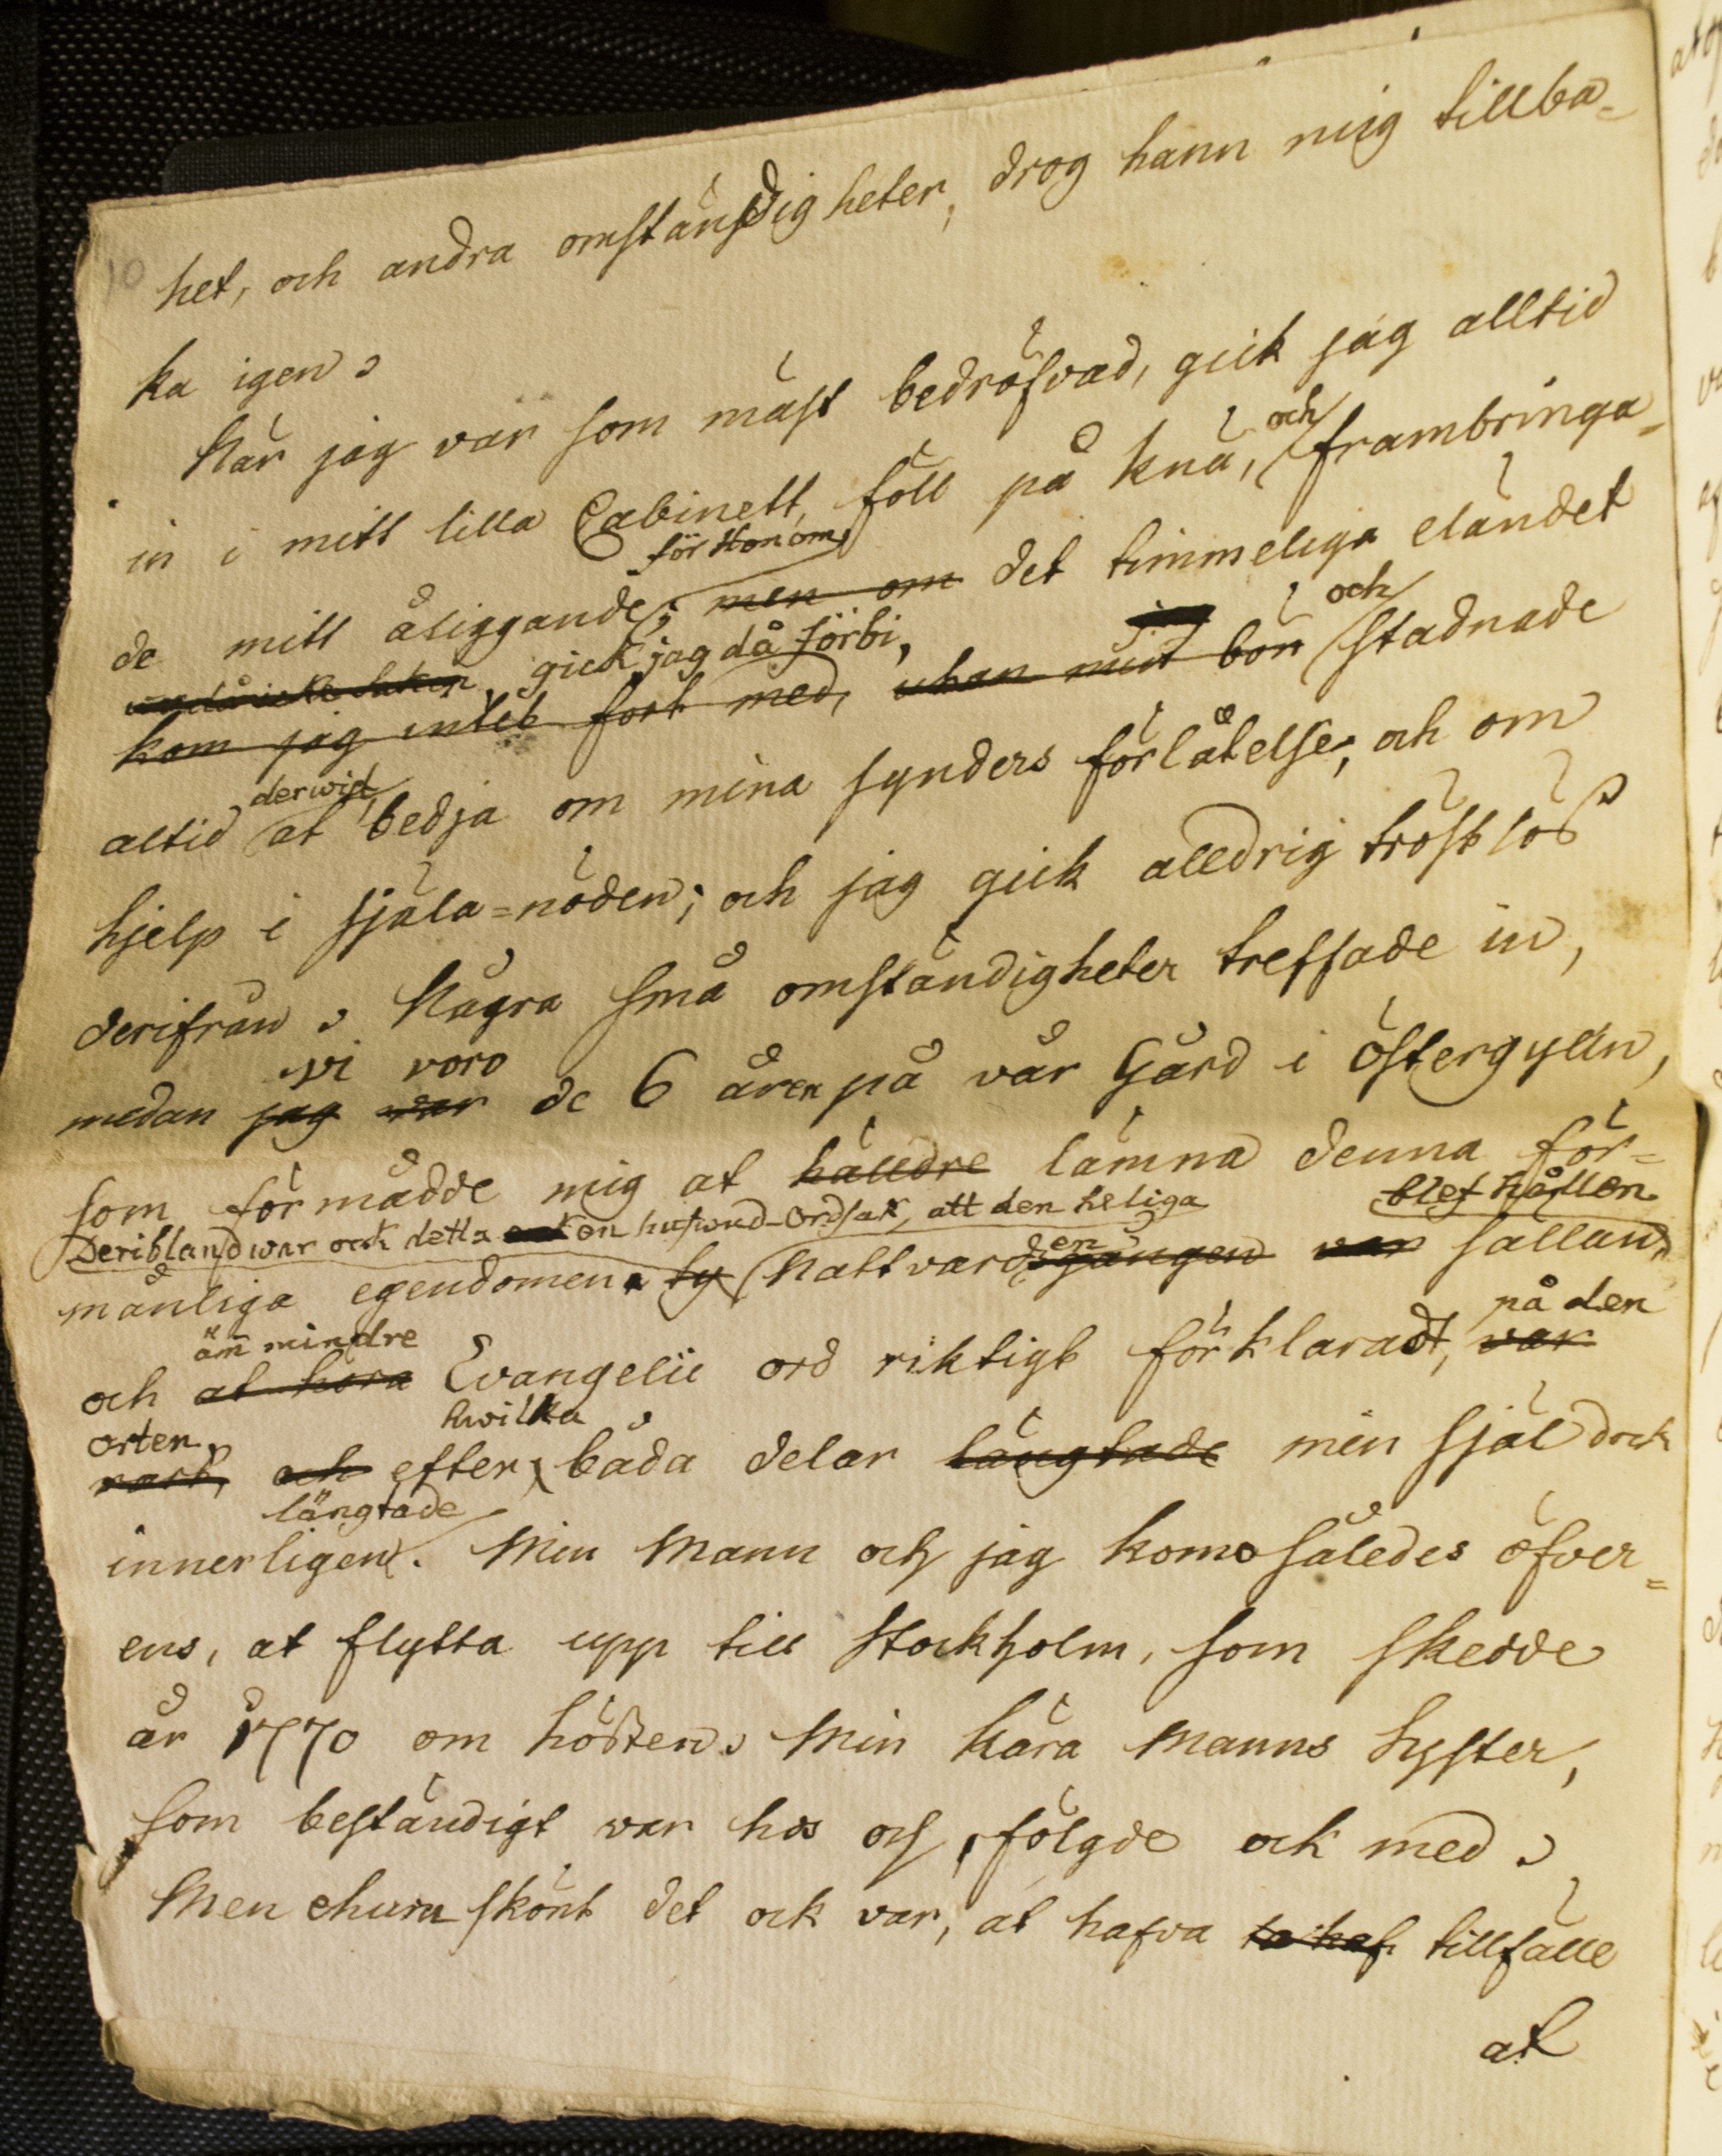 10
het, och andra omständigheter, drog hann mig tillba=
ka igen.
När jag var som mäst bedröfvad, gick jag alltid
in i mitt lilla Cabinett, föll på knä, och frambringa=
för Honom,
de mitt åliggande; men om det timmeliga eländet
gick jag då förbi,
kom jag intet fort med, utan min bön och stadnade
derwid
altid at bedja om mina synders förlåtelse, och om
hjelp i själa=nöden; och jag gick alldrig tröstlös
derifrån. Några små omständigheter treffade in,
vi voro
medan jag var de 6 åren på vår Gård i Östergylln,
som förmådde mig at hälldre lämna denna för=
Deribland war ock detta en hufwud-ordsak, att den heliga blef hållen
månliga egendomen. ty Nattvardsgången en var sällan,
än mindre på den
och at höra Evangelii ord riktigt förklaradt, var
orten, hwilka
rart, och efter båda delar längtade min själ dock
längtade
innerligen. Min Mann och jag komo således öfver=
ens, at flytta upp till Stockholm, som skedde
år 1770 om hösten. Min kära Manns Syster,
som beständigt var hos oss, fölgde ock med.
Men ehuru skönt det ock var, at hafva tillfälle
at